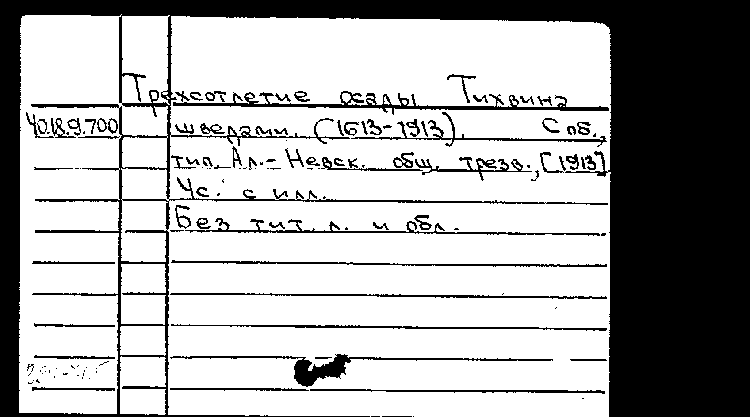 Трехсотлетие осады Тихвина
Чо.18.9.700 шведами. (1613-1913). Спб.,
тип. Ал.-Невск. общ. трезв., [1913]
4с. с илл.
Без тит. л. и обл.